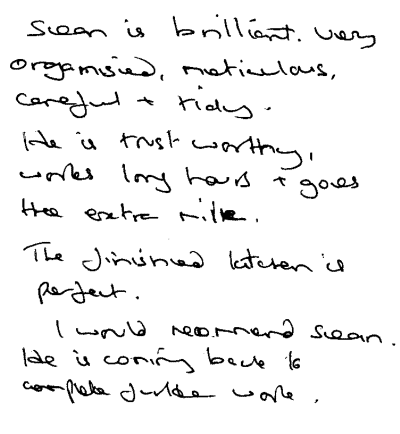 Sean is brilliant. Very
organised, meticulous,
careful + tidy.
He is trustworthy,
works long hours + goes
the extra mile.
The finished kitchen is
perfect.
I would recommend Sean.
He is coming back to
complete further work.